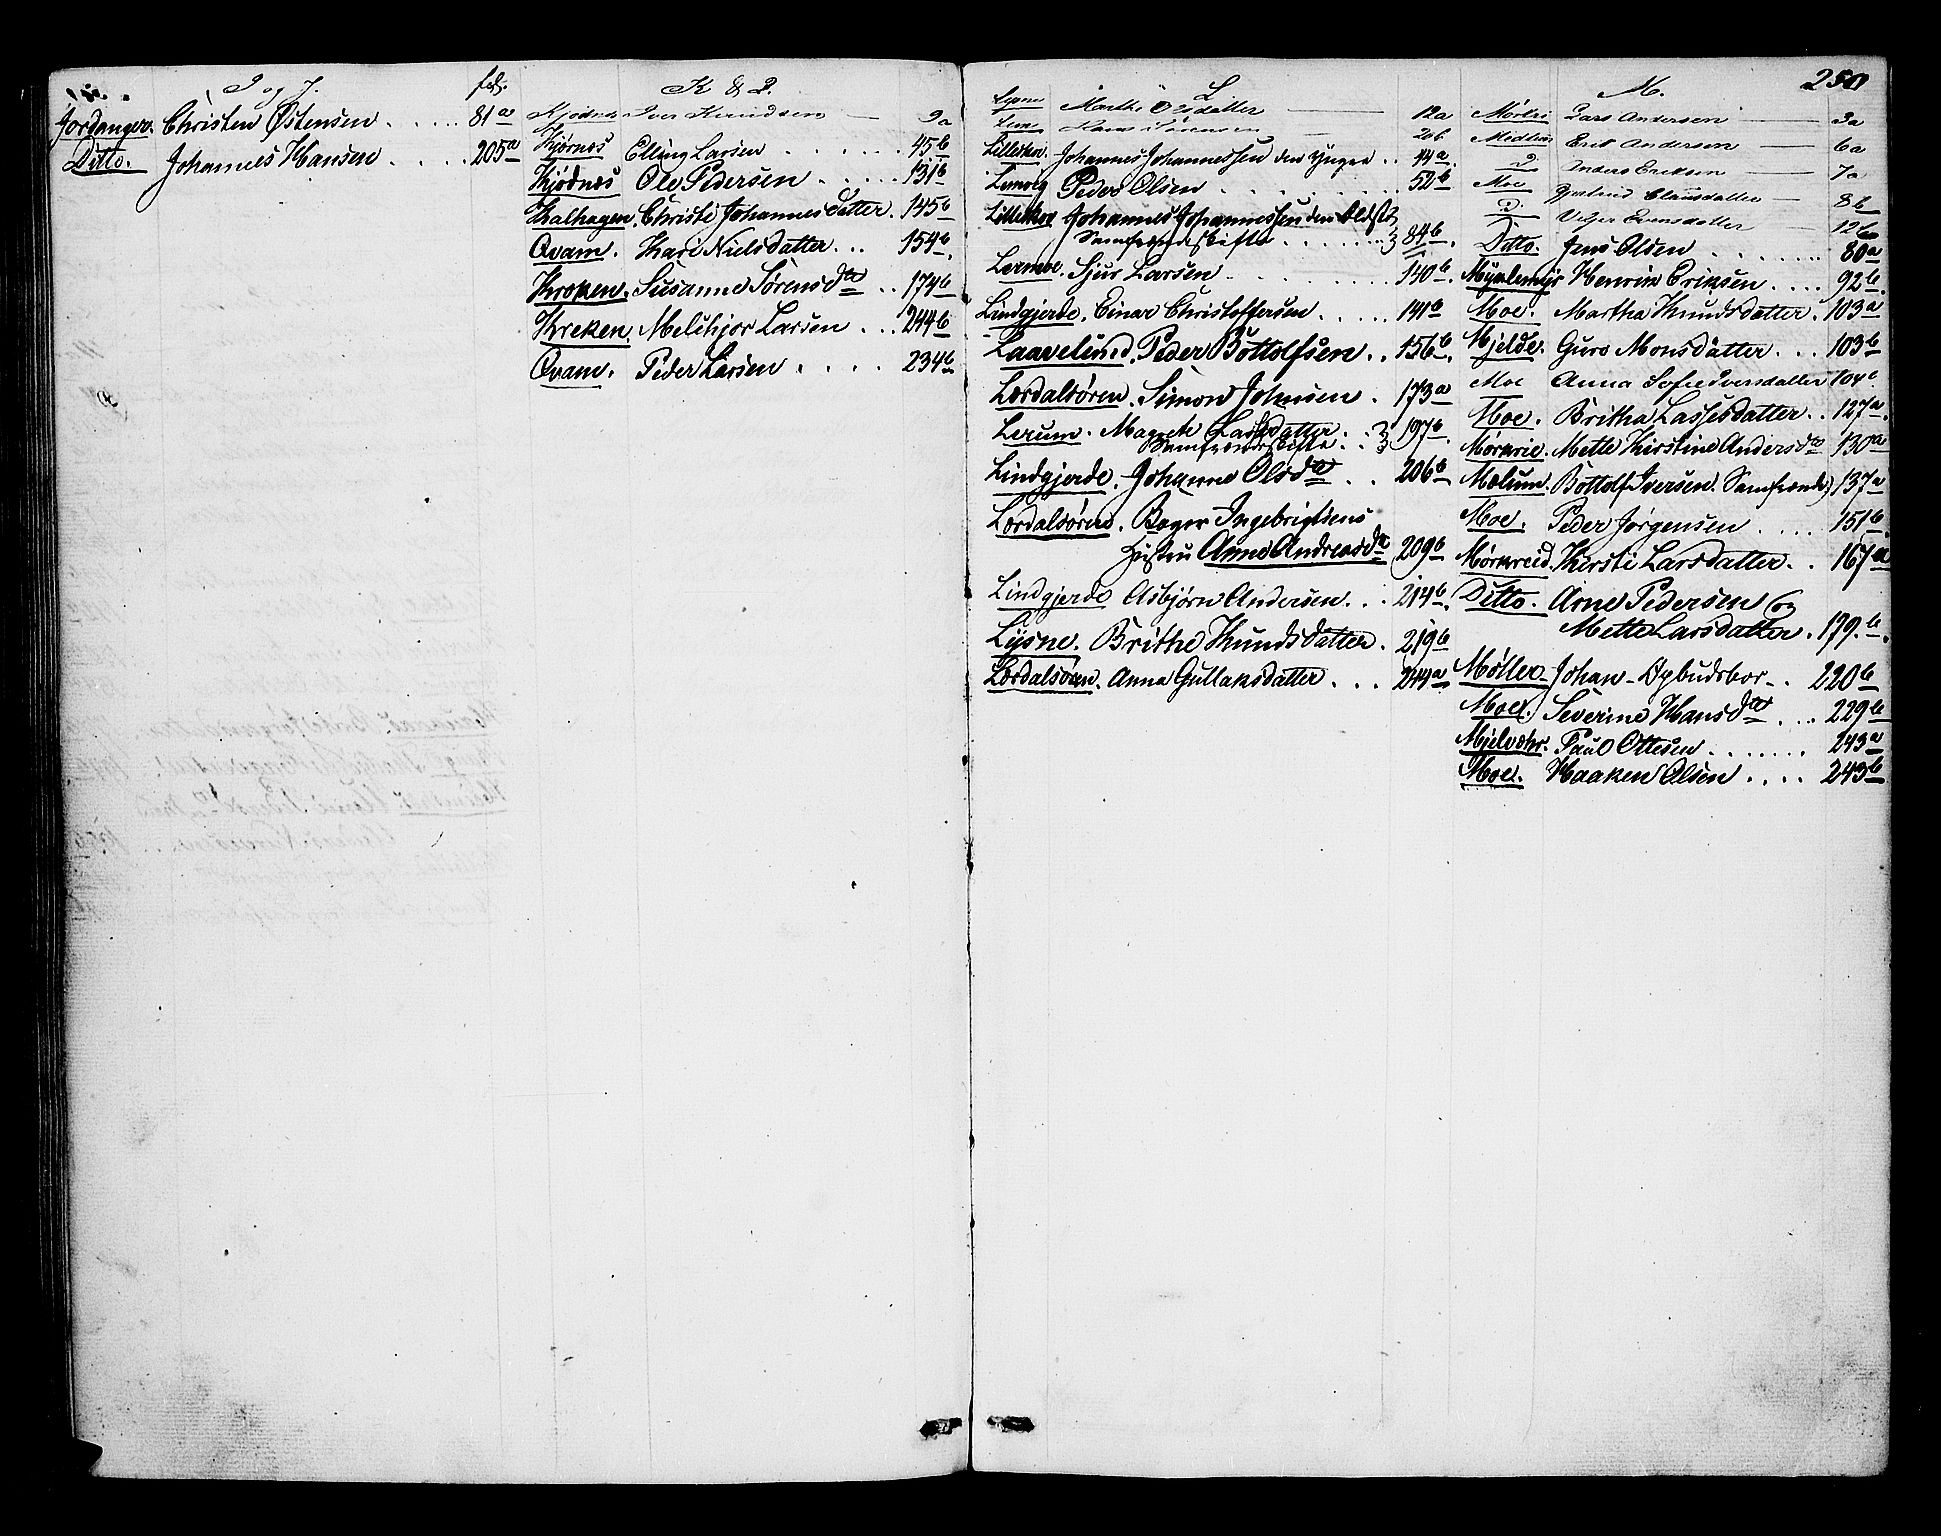 I og J. fol.
Jordanger. Christen Østensen . . . . . 81a
Ditto. Johannes Hansen . . . . 205a
K & Q.
Kjødnes Iver Knudsen — 9a
Kjørnes Elling Larsen . . . . . . 45b
Kjødnes Ole Pedersen . . . . . 131b
Kalhagen. Christi Johannesdatter. 145b
Qvam. Kari Nielsdatter . . . 154b.
Kroken. Susanne Sørensdtr . . 174b
Kreken. Melchjor Larsen . . . 244b
Qvam. Peder Larsen . . . . 234b
L
Lysne Marthe Olsdatter — 12a
Hans — 20b
Lilleskou. Johannes Johannessen den Yngre . . 44a.
Lemveg Peder Olsen . . . . . . . . 52b
Lilleskou Johannes Johannessen den Ældste
Samfrændeskifte . . . . . . . 84b.
Lermoe. Sjur Larsen . . . . . . . 140b.
Lindgjerde. Einar Christoffersen . . . . . 141b
Laavelund. Peder Bottolfsen . . 156b.
Lærdalsøren. Simon Johnsen . 173a
Lerum. Magrete Lassedatter .
Samfrændeskifte . . 197b.
Lindgjerde. Johanne Olsdtr . . 206b
Lærdalsøren. Roger Ingebrigtsens
Hustru Anne Andreasdtr 209b
Lindgjerde Asbjørn Andersen . . . 214b.
Lysne. Brithe Knudsdatter . 219b
Lærdalsøren. Anna Gullaksdatter . . . 244a
M. 250
Mørkri Lars Andersen — 3a
Midtun Erik Andersen — 6a
D. Anders Eriksen — 7a
Moe Gjertrud Claussdatter — 8b
D. Iversdatter — 12b
Ditto. Jens Olsen . . . . . . . . 80a
Myklemyr Henrik Eriksen . . . . 92b.
Moe. Martha Knudsdatter . 103a
Mjelde. Guro Monsdatter . . . 103b
Moe Anna Sofie Iversdatter 104b
Moe. Britha Lassesdatter . . 127a.
Mørkrie. Mette Kirstine Andersdtr 130a
Mælum. Bottolf Iversen. Samfrænde) 137a
Moe. Peder Jørgensen . . . . 151b.
Mørkreid. Kirsti Larsdatter . . 167a
Ditto. Arne Pedersen og
Mette Larsdatter . 179.b.
Møller Johan - Opbudsbor - . 220b
Moe. Severine Hansdtr . . . 229b
Mjelvehr. Paul Ottesen . . . . . . . 243a
Moe. Haaken Olsen . . . . 243b